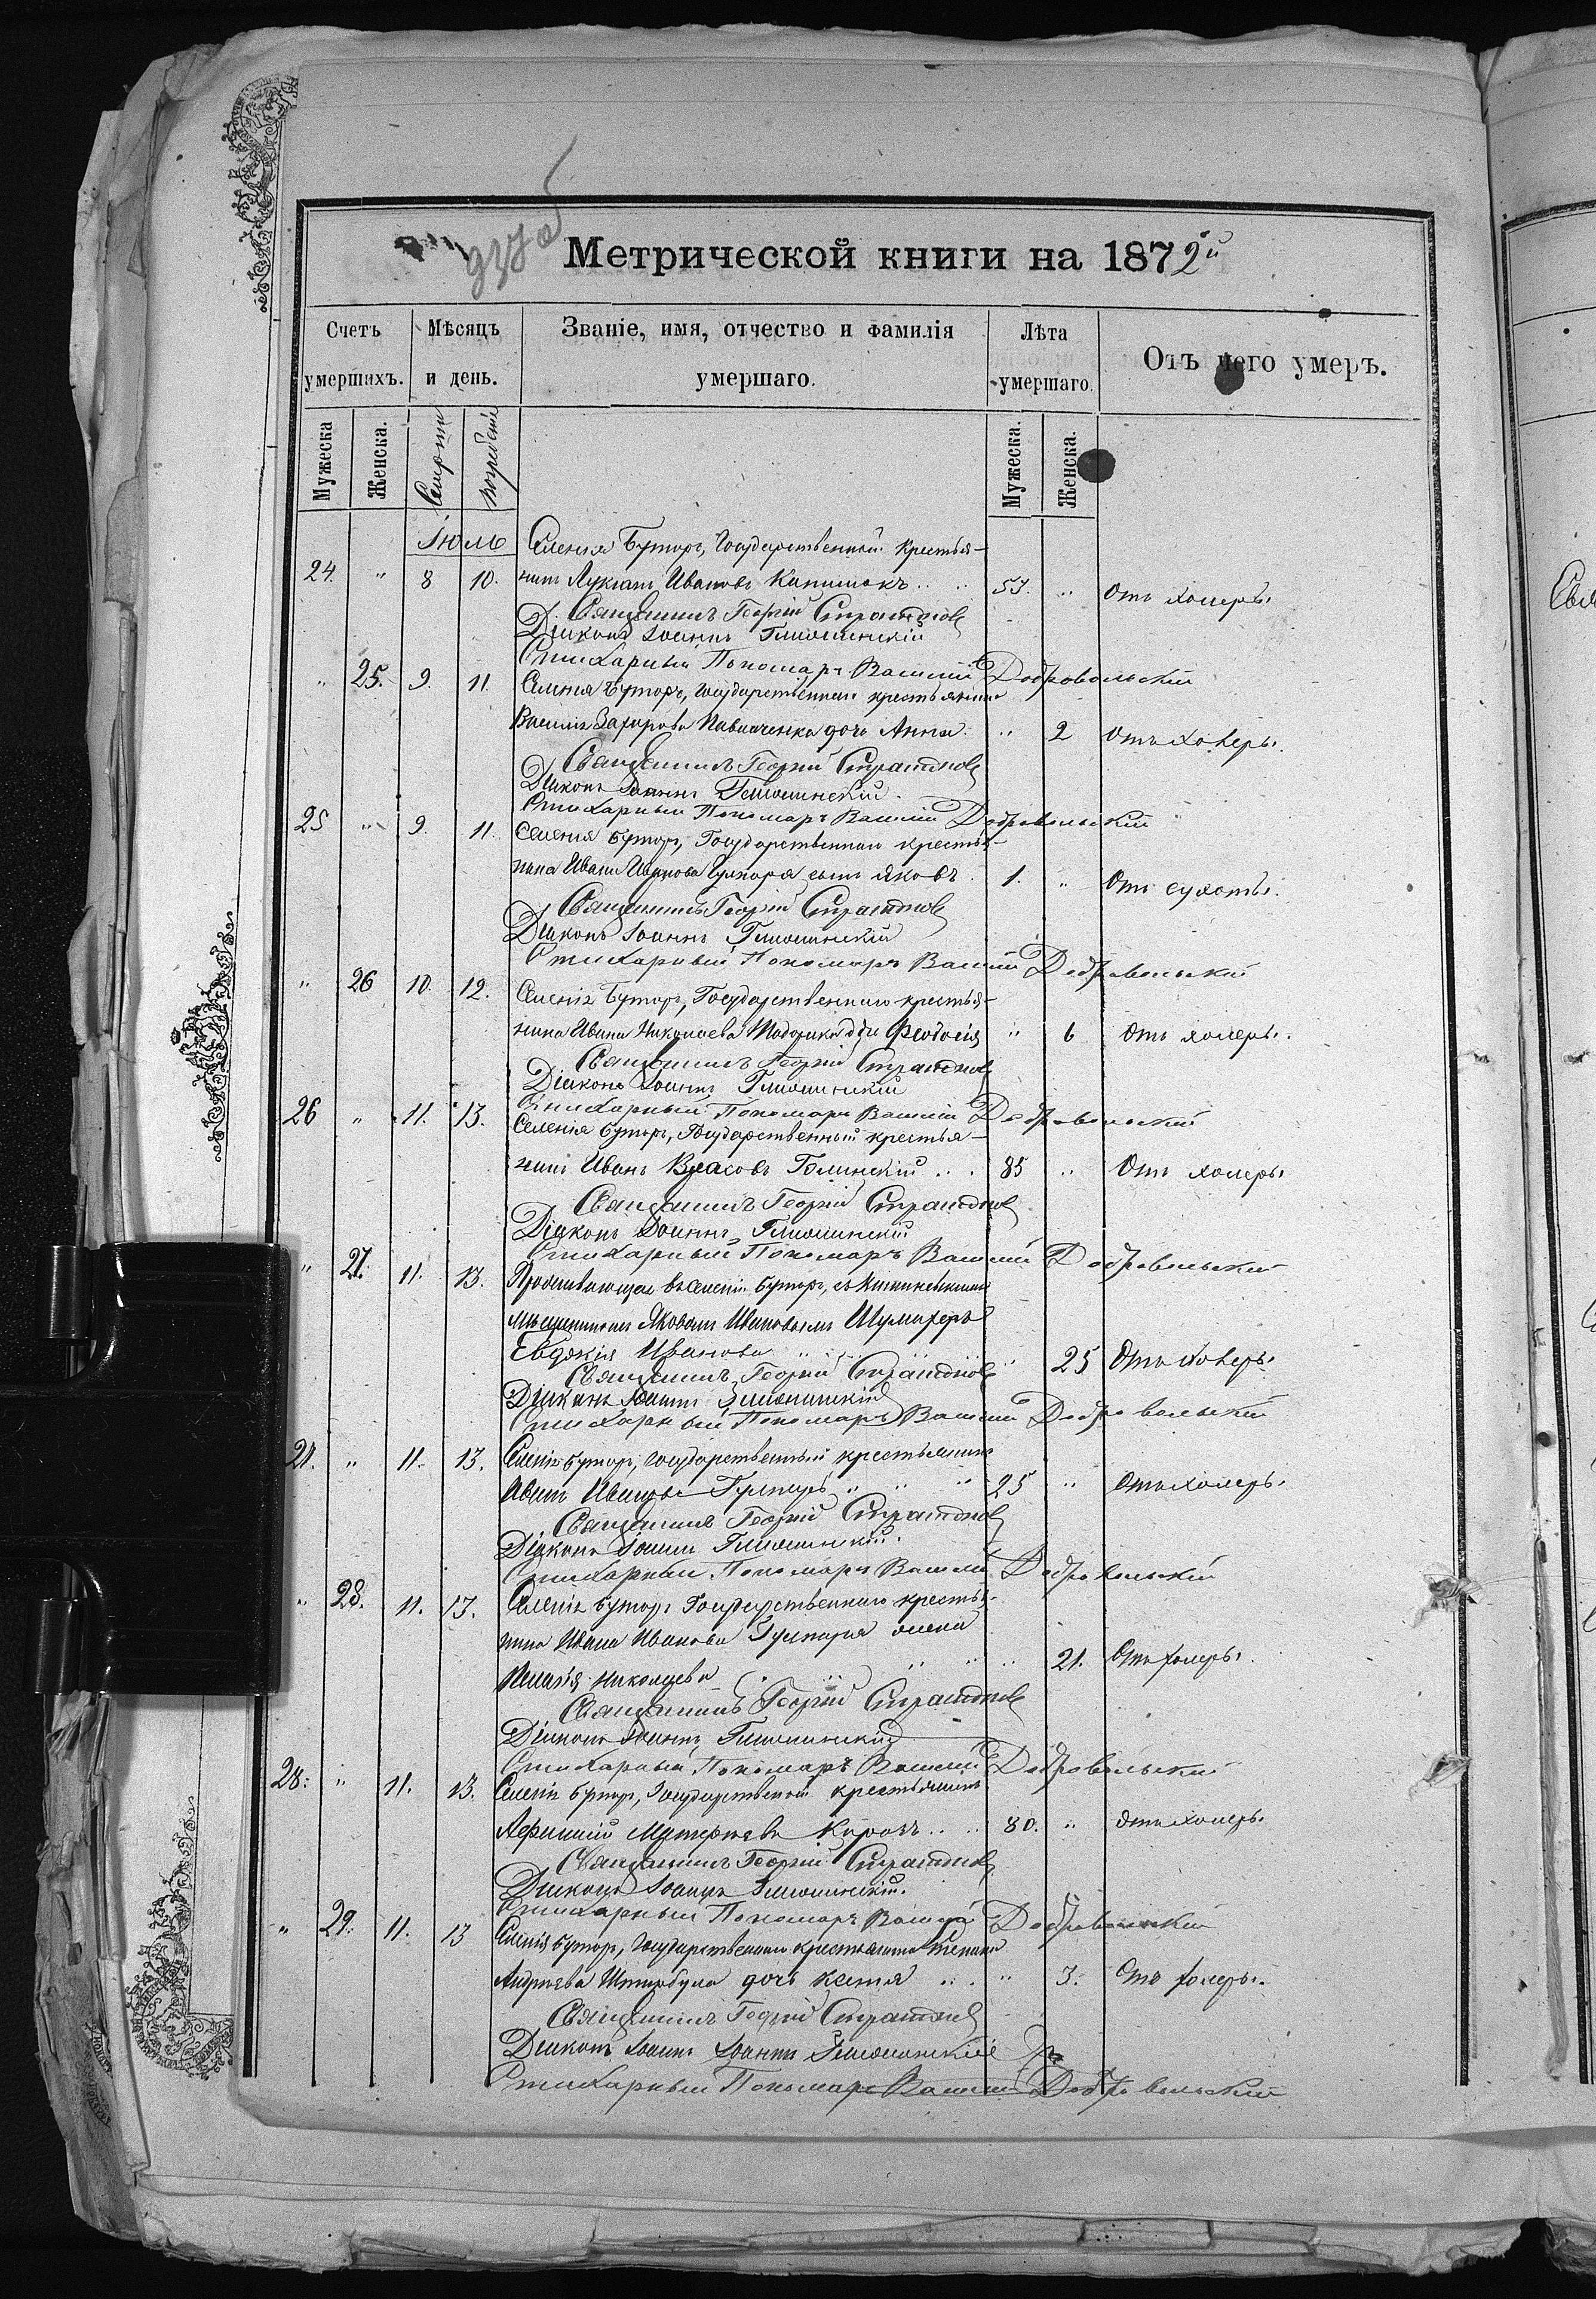 Метрической книги на 1872й
Счетъ умершихъ.
Мѣсяцъ и день.
Званіе, имя, отчество и фамилія умершаго.
Лѣта умершаго.
Отъ чего умеръ.
Мужеска
Женска.
Смерти
погребенія
Мужеска.
Женска.
Іюль
Селенія Буторъ, Государственный крестья-
24. " 8 10. нинъ Лукіанъ Ивановъ 53. " Отъ холеры.
Священникъ Георгій Стратоновъ
Діаконъ Іоаннъ
Стихарный Пономарь Василій Добровольскій
" 25. 9. 11. Селенія Буторъ, государственнаго крестьянина
Василія Захарова дочь Анна. " 2 Отъ холеры.
Священникъ Георгій Стратоновъ
Діаконъ Іоаннъ
Стихарный Пономарь Василій Добровольскій
25 " 9. 11. Селенія Буторъ, Государственнаго крестья-
нина Ивана Иванова сынъ Яковъ. 1. " Отъ сухоты.
Священникъ Георгій Стратоновъ
Діаконъ Іоаннъ
Стихарный Пономарь Василій Добровольскій
" 26 10. 12. Селенія Буторъ, Государственнаго крестья-
нина Ивана Николаева Феодосія " 6 Отъ холеры.
Священникъ Георгій Стратоновъ
Діаконъ Іоаннъ
Стихарный Пономарь Василій Добровольскій
26 " 11. 13. Селенія Буторъ, Государственный крестья-
нинъ Иванъ Власовъ Голинскій 85 " Отъ холеры
Священникъ Георгій Стратоновъ
Діаконъ Іоаннъ
Стихарный Пономарь Василій Добровольскій
" 27. 11. 13. Проживающая въ селеніи Буторъ, съ Кишиневскимъ
мѣщаниномъ Яковомъ Ивановымъ Шумахеръ
Евдокія Иванова " 25 Отъ холеры
Священникъ Георгій Стратоновъ
Діаконъ Іоаннъ
Стихарный Пономарь Василій Добровольскій
27. " 11. 13. Селенія Буторъ, государственный крестьянинъ
Иванъ Ивановъ " " " 25 " Отъ холеры.
Священникъ Георгій Стратоновъ
Діаконъ Іоаннъ
Стихарный Пономарь Василій Добровольскій
" 28. 11. 13. Селенія Буторъ Государственнаго крестья-
нина Ивана Иванова жена
Пелагія Николаева " " " 21. Отъ холеры.
Священникъ Георгій Стратоновъ
Діаконъ Іоаннъ
Стихарный Пономарь Василій Добровольскій
28. " 11. 13. Селенія Буторъ, Государственный крестьянинъ
80. " Отъ холеры.
Священникъ Георгій Стратоновъ
Діаконъ Іоаннъ
Стихарный Пономарь Василій Добровольскій
" 29. 11. 13 Селенія Буторъ, Государственнаго крестьянина
Андреева дочь Ксенія " 3. Отъ холеры.
Священникъ Георгій Стратоновъ
Діаконъ Іоаннъ Іоаннъ
Стихарный Пономарь Василій Добровольскій